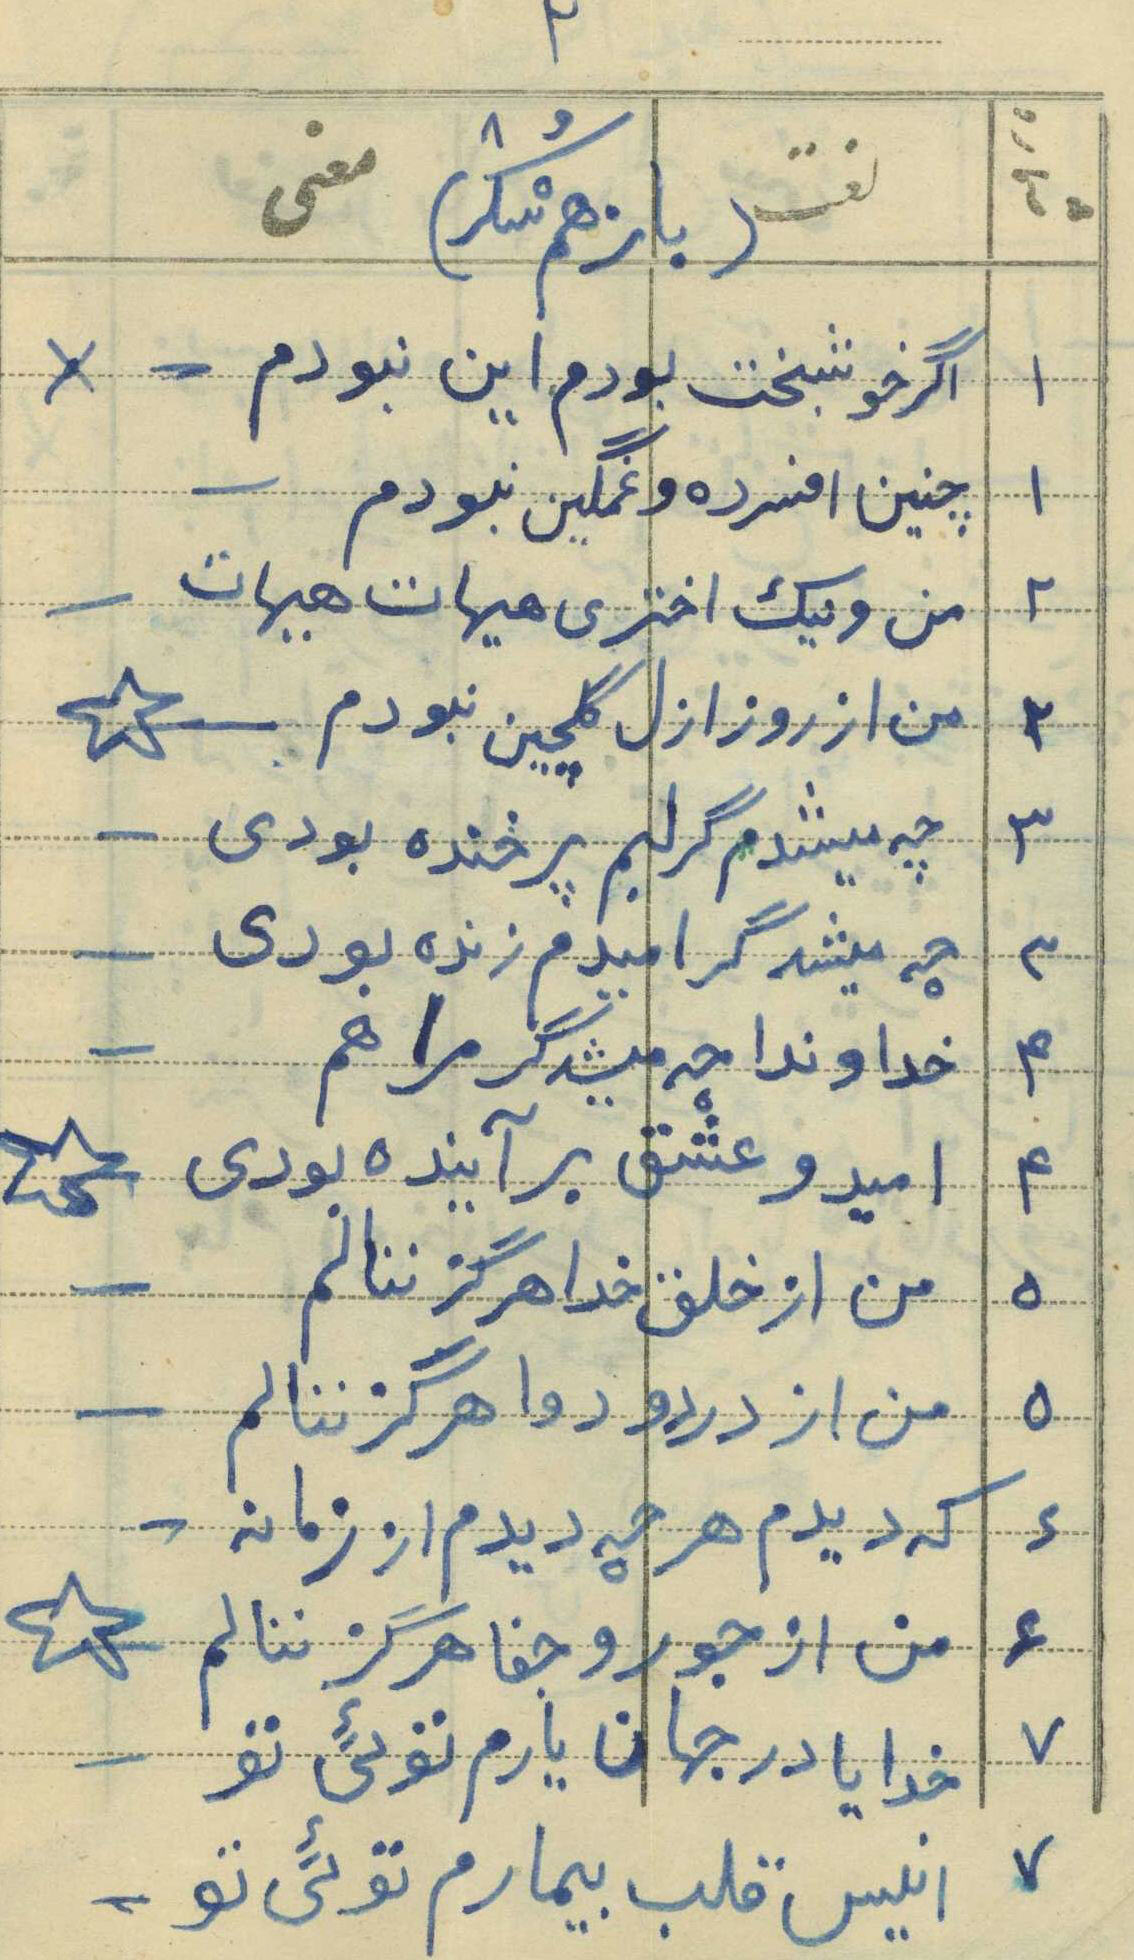 ۲
شماره لغت معنی
(بازهم شُکر) ۸
۱ اگر خوشبخت بودم این نبودم -
۱ چنین افسرده و غمگین نبودم -
۲ من و نیک اختری هیهات هیهات -
۲ من از روز ازل گلچین نبودم -
۳ چه میشدم گر لبم پر خنده بودی -
۳ چه میشد گر امیدم زنده بودی -
۴ خداوندا چه میشد گر مرا هم -
۴ امید و عشق بر آینده بودی -
۵ من از خلق خدا هرگز ننالم -
۵ من از درد و دوا هرگز ننالم -
۶ که دیدم هر چه دیدم از زمانه -
۶ من از جور و جفا هرگز ننالم -
۷ خدایا در جهان یارم توئی تو -
۷ انیس قلب بیمارم توئی تو -